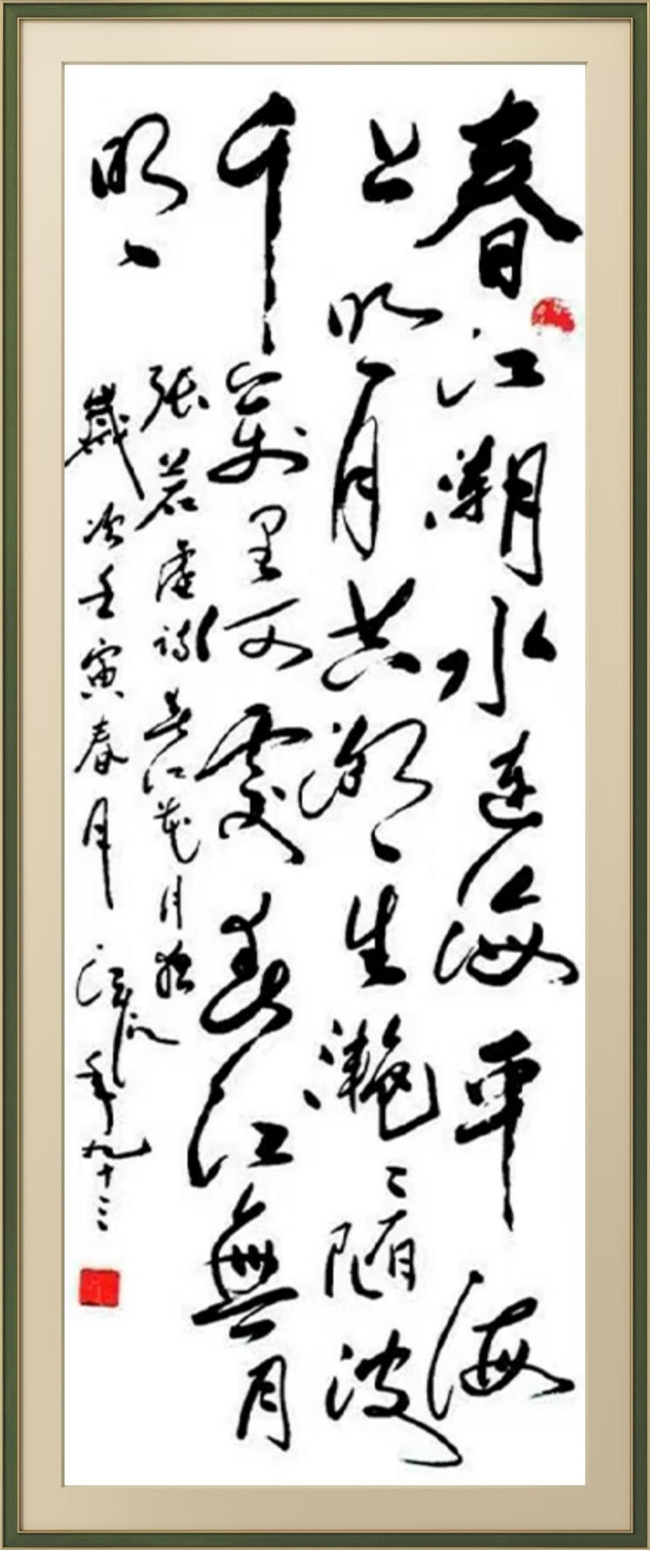 春江潮水連海平海
上明月共潮生灧〻随波
千萬里何處春江無月
明
張若虚詩春江花月夜
歲次壬寅春月 年九十三